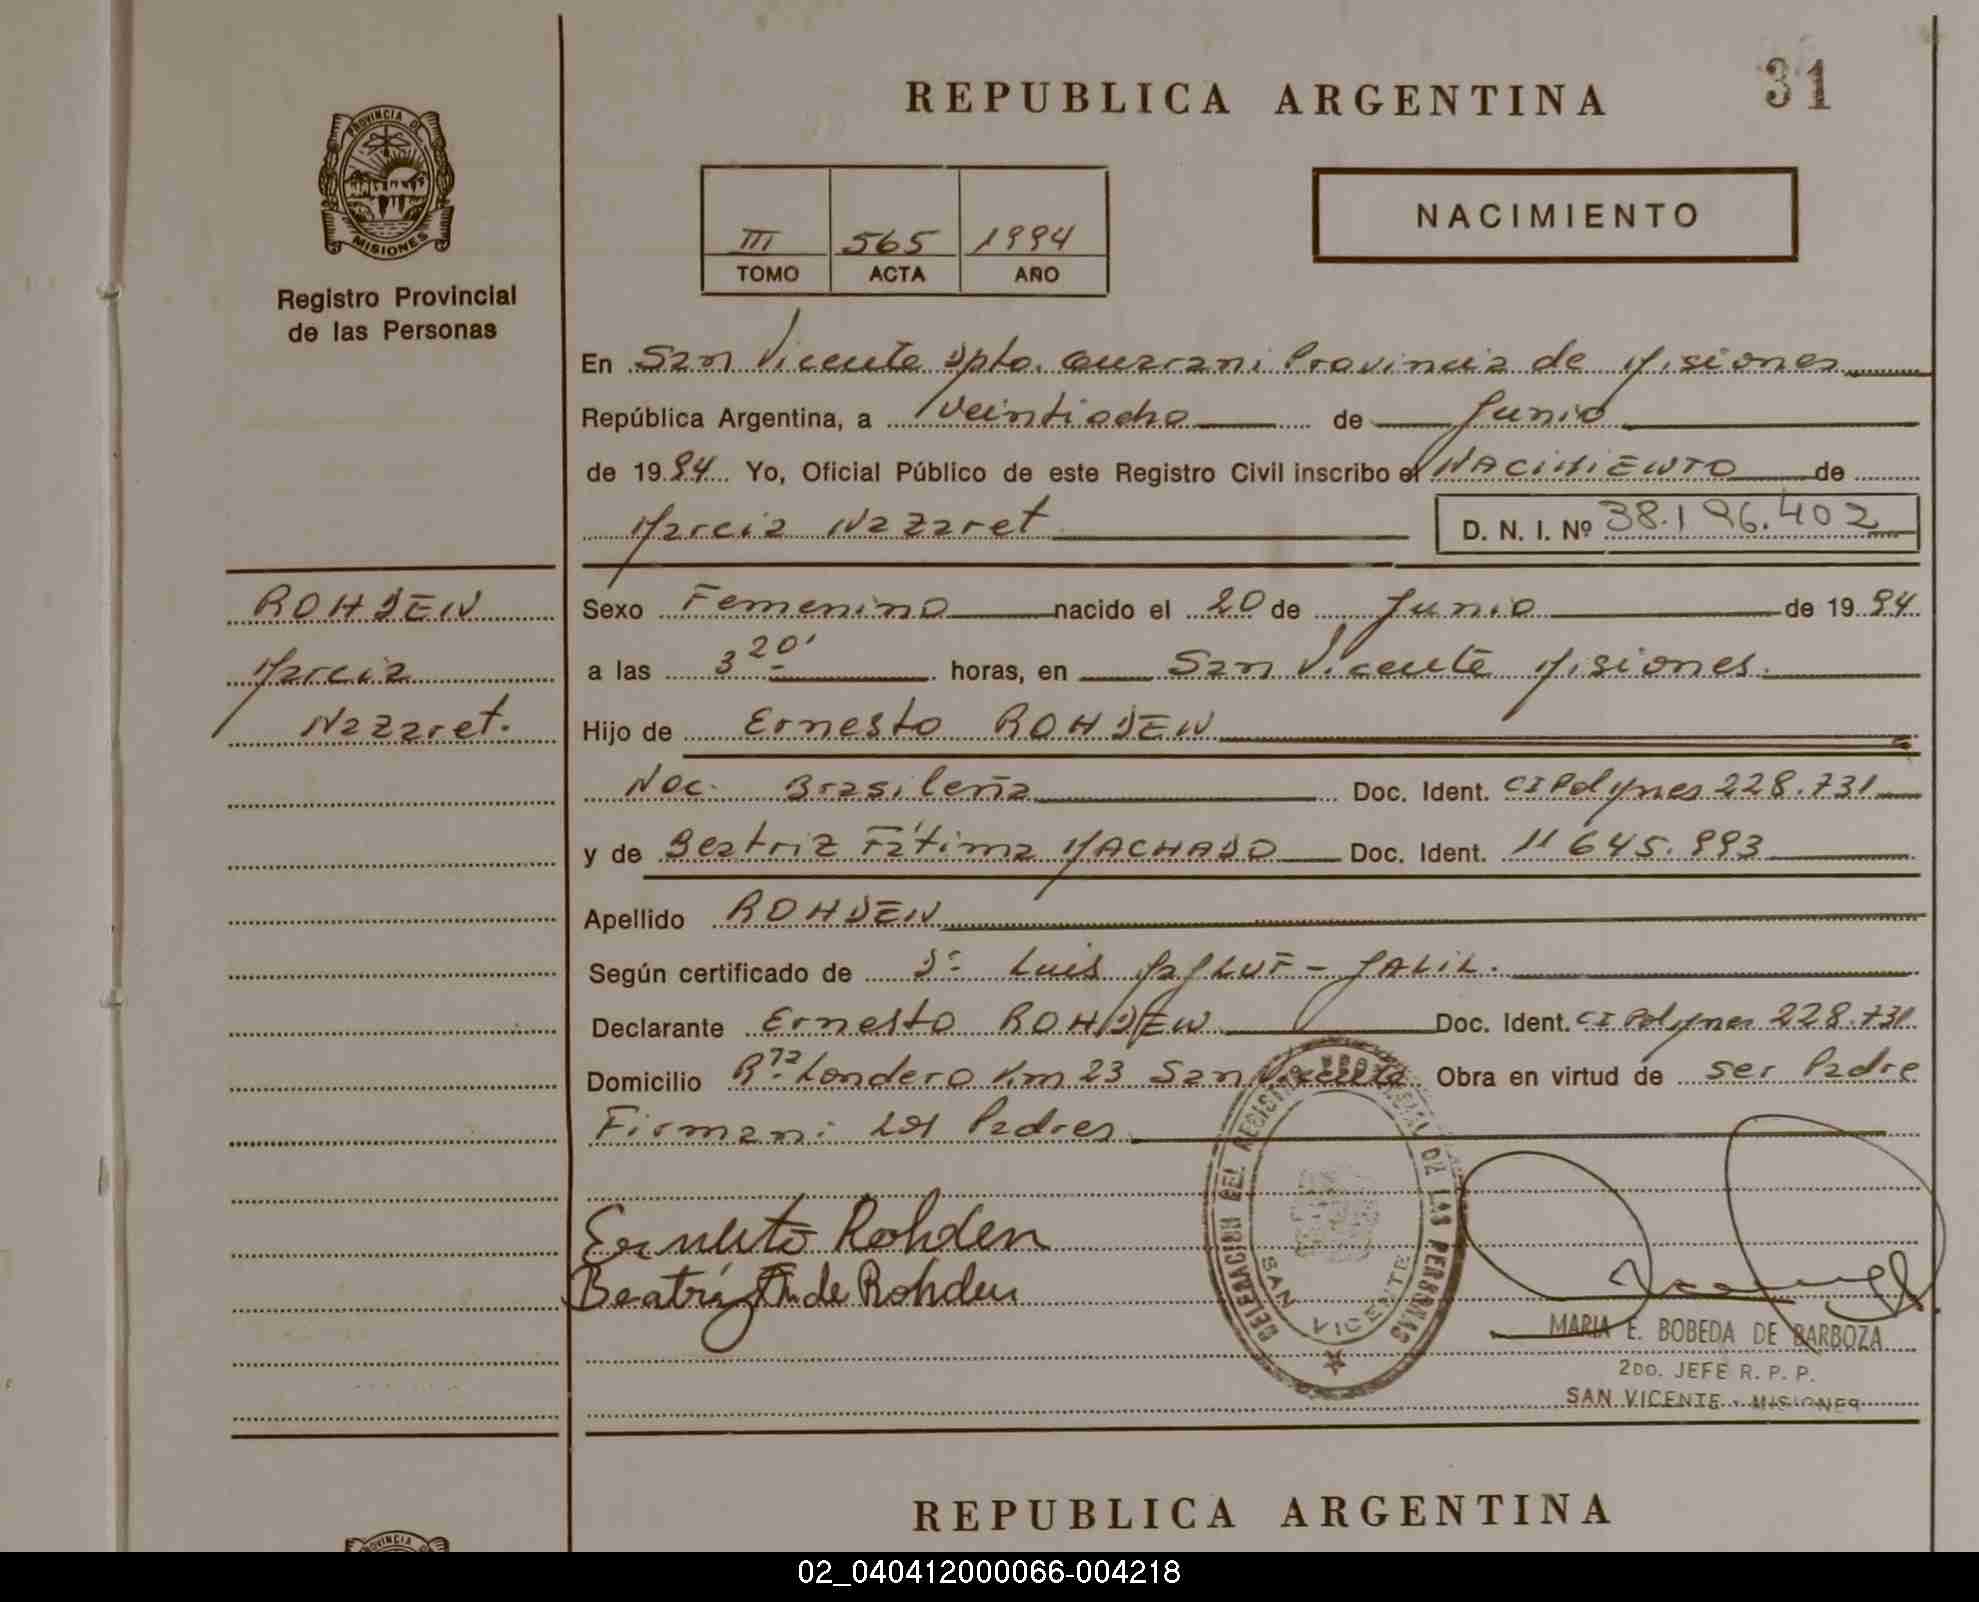 REPUBLICA ARGENTINA
31
PROVINCIA DE
MISIONES
Registro Provincial
de las Personas
III 565 1994
TOMO ACTA AÑO
NACIMIENTO
En San Vicente Dpto. Guarani Provincia de Misiones
República Argentina, a Veintiocho de Junio
de 1994 Yo, Oficial Público de este Registro Civil inscribo el NACIMIENTO de
Marcia Nazaret D. N. I. Nº 38.196.402
ROHDEN
Marcia
Nazaret.
Sexo Femenino nacido el 20 de Junio de 1994
a las 3 20' horas, en San Vicente Misiones.
Hijo de Ernesto ROHDEN
Nac. Brasileña Doc. Ident. CI Pol Mnes 228.731
y de Beatriz Fátima MACHADO Doc. Ident. 11 645.993
Apellido ROHDEN
Según certificado de Dr Luis - JALIL.
Declarante Ernesto ROHDEN Doc. Ident. CI Pol Mnes 228.731
Domicilio Londero Km 23 San Vicente Obra en virtud de ser Padre
Firman: los Padres
Ernesto Rohden
Beatriz de Rohden
DELEGACION DEL REGISTRO PROVINCIAL DE LAS PERSONAS
SAN VICENTE
MARIA E. BOBEDA DE BARBOZA
2DO. JEFE R. P. P.
SAN VICENTE - MISIONES
REPUBLICA ARGENTINA
PROVINCIA DE
02_040412000066-004218